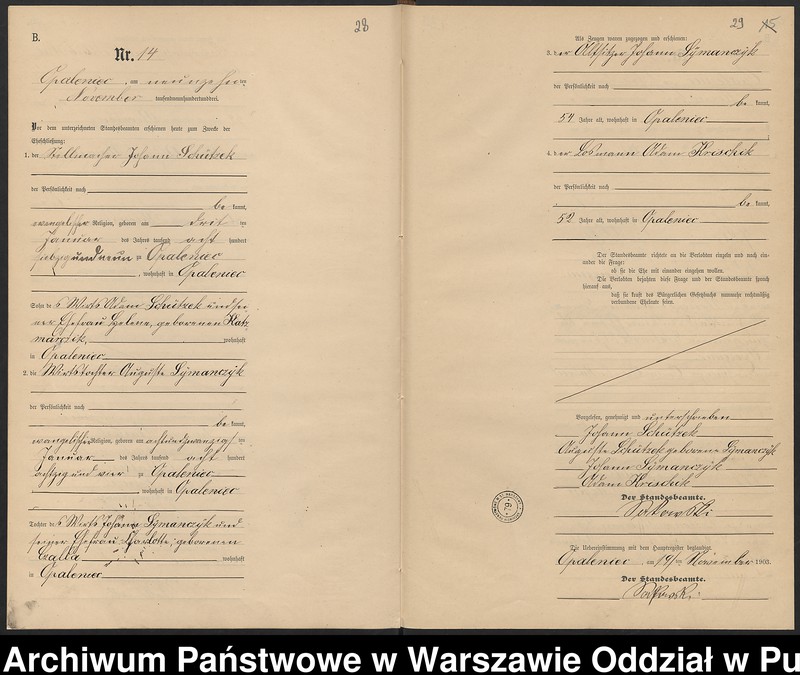 B.
28
Nr. 14
Opaleniec, am neunzehnten
November tausendneunhundertunddrei.
Vor dem unterzeichneten Standesbeamten erschienen heute zum Zwecke der
Eheschließung:
1. der Stellmacher Johann Schützek
der Persönlichkeit nach
be kannt,
evangelischer Religion, geboren am drit ten
Januar des Jahres tausend acht hundert
siebzig und neun zu Opaleniec
, wohnhaft in Opaleniec
Sohn des Wirts Adam Schützek und sei
ner Ehefrau Helene, geborenen Katz
marzik, wohnhaft
in Opaleniec
2. die Wirtstochter Auguste Symanczyk
der Persönlichkeit nach
be kannt,
evangelischer Religion, geboren am achtundzwanzigs ten
Januar des Jahres tausend acht hundert
achtzig und vier zu Opaleniec
, wohnhaft in Opaleniec
Tochter des Wirts Johann Symanczyk und
seiner Ehefrau Charlotte, geborenen
wohnhaft
in Opaleniec
29
Als Zeugen waren zugezogen und erschienen:
3. der Altsitzer Johann Symanczyk
der Persönlichkeit nach
be kannt,
54 Jahre alt, wohnhaft in Opaleniec
4. der Losmann Adam Krischik
der Persönlichkeit nach
be kannt,
52 Jahre alt, wohnhaft in Opaleniec
Der Standesbeamte richtete an die Verlobten einzeln und nach ein-
ander die Frage:
ob sie die Ehe mit einander eingehen wollen.
Die Verlobten bejahten diese Frage und der Standesbeamte sprach
hierauf aus,
daß sie kraft des Bürgerlichen Gesetzbuchs nunmehr rechtmäßig
verbundene Eheleute seien.
Vorgelesen, genehmigt und unterschrieben
Johann Schützek
Auguste Schützek geborene Symanczyk
Johann Symanczyk
Adam Krischik
Der Standesbeamte.
Sakowski
Die Uebereinstimmung mit dem Hauptregister beglaubigt.
Opaleniec, am 19 ten November 1903.
Der Standesbeamte.
Sakowski
Archiwum Państwowe w Warszawie Oddział w Pu